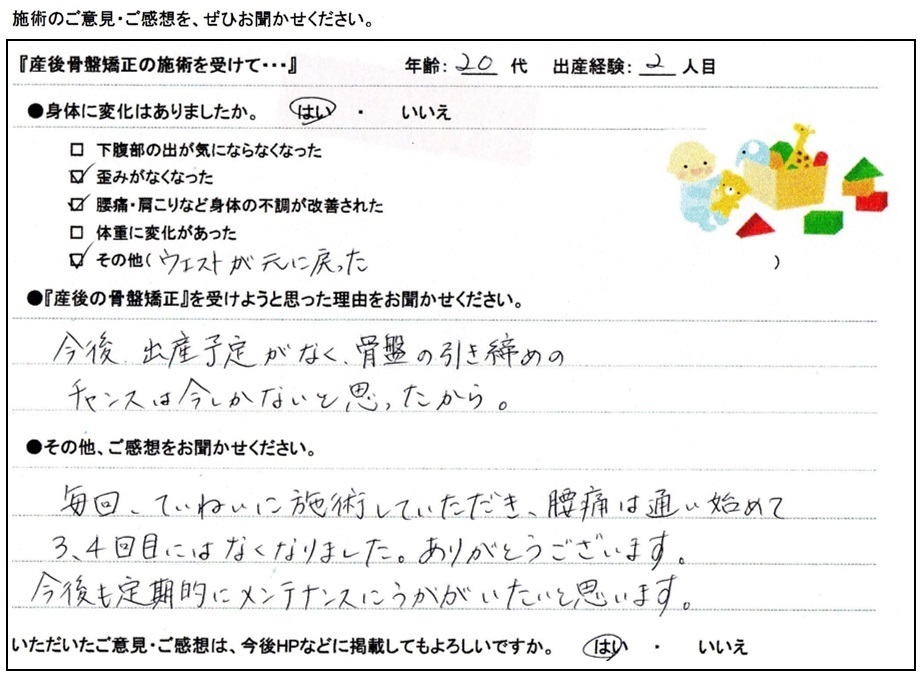 施術のご意見・ご感想を、ぜひお聞かせください。
『産後骨盤矯正の施術を受けて・・・』 年齢： 20 代 出産経験： 2 人目
●身体に変化はありましたか。 はい ・ いいえ
□ 下腹部の出が気にならなくなった
☑ 歪みがなくなった
☑ 腰痛・肩こりなど身体の不調が改善された
□ 体重に変化があった
☑ その他（ ウエストが元に戻った ）
●『産後の骨盤矯正』を受けようと思った理由をお聞かせください。
今後、出産予定がなく、骨盤の引き締めの
チャンスは今しかないと思ったから。
●その他、ご感想をお聞かせください。
毎回、ていねいに施術していただき、腰痛は通い始めて
3、4回目にはなくなりました。ありがとうございます。
今後も定期的にメンテナンスにうかがいたいと思います。
いただいたご意見・ご感想は、今後HPなどに掲載してもよろしいですか。 はい ・ いいえ